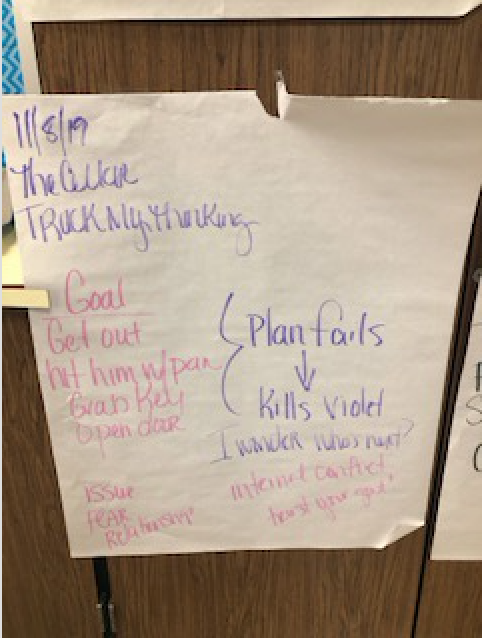 11/8/19
The Cellar
TRACK My Thinking
Goal
Get out
hit him w/pan
Grab Key
open door
Plan fails
↓
Kills Violet
I wonder who's next?
issue
FEAR
Relationship
internal conflict
your